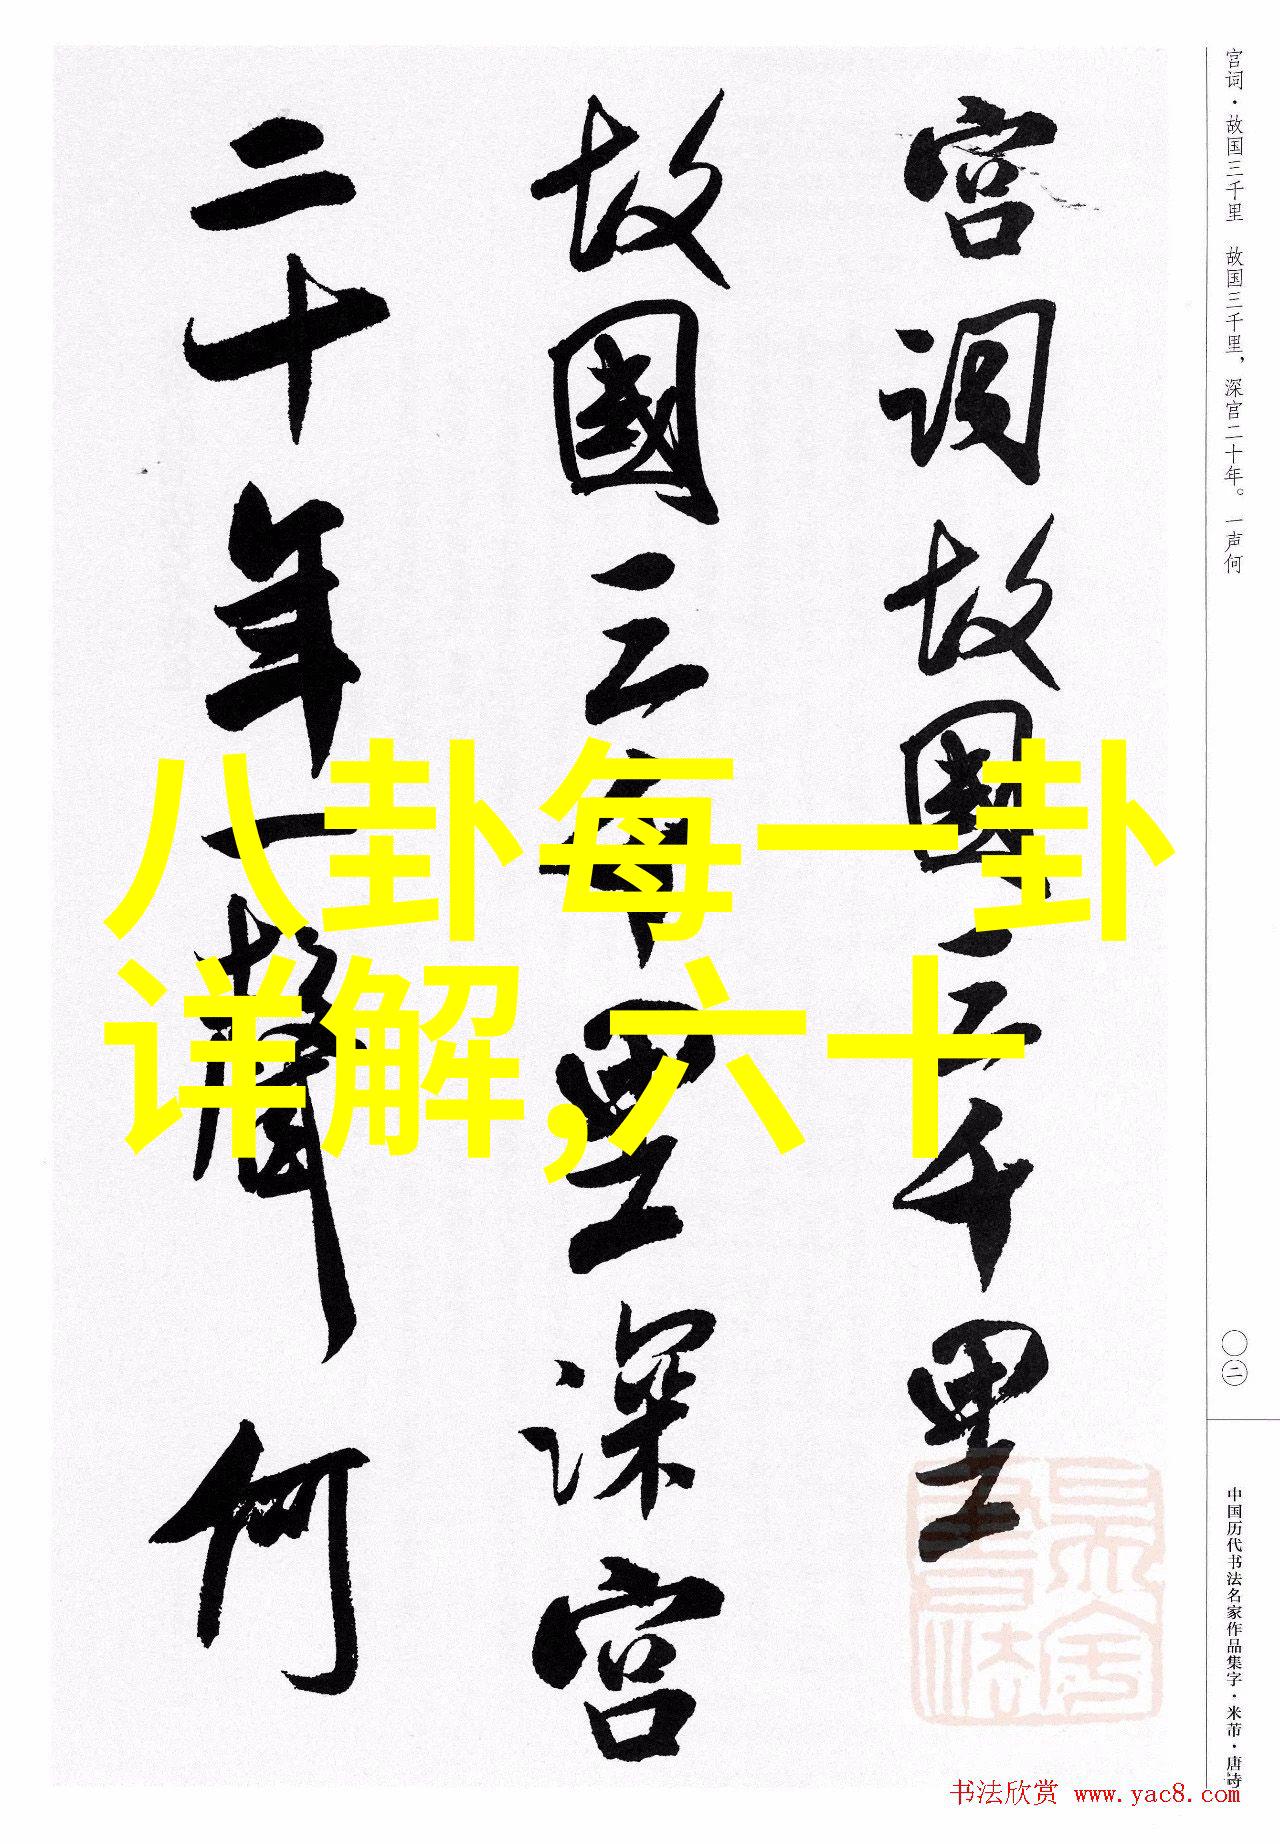 宫词·故国三千里 故国三千里，深宫二十年。一声何
宫词故國三千里
故國三千里深宫
二十年一聲何
八卦每一卦
详解,六十
〇二
中国历代书法名家作品集字·米芾·唐诗
书法欣赏 www.yac8.com